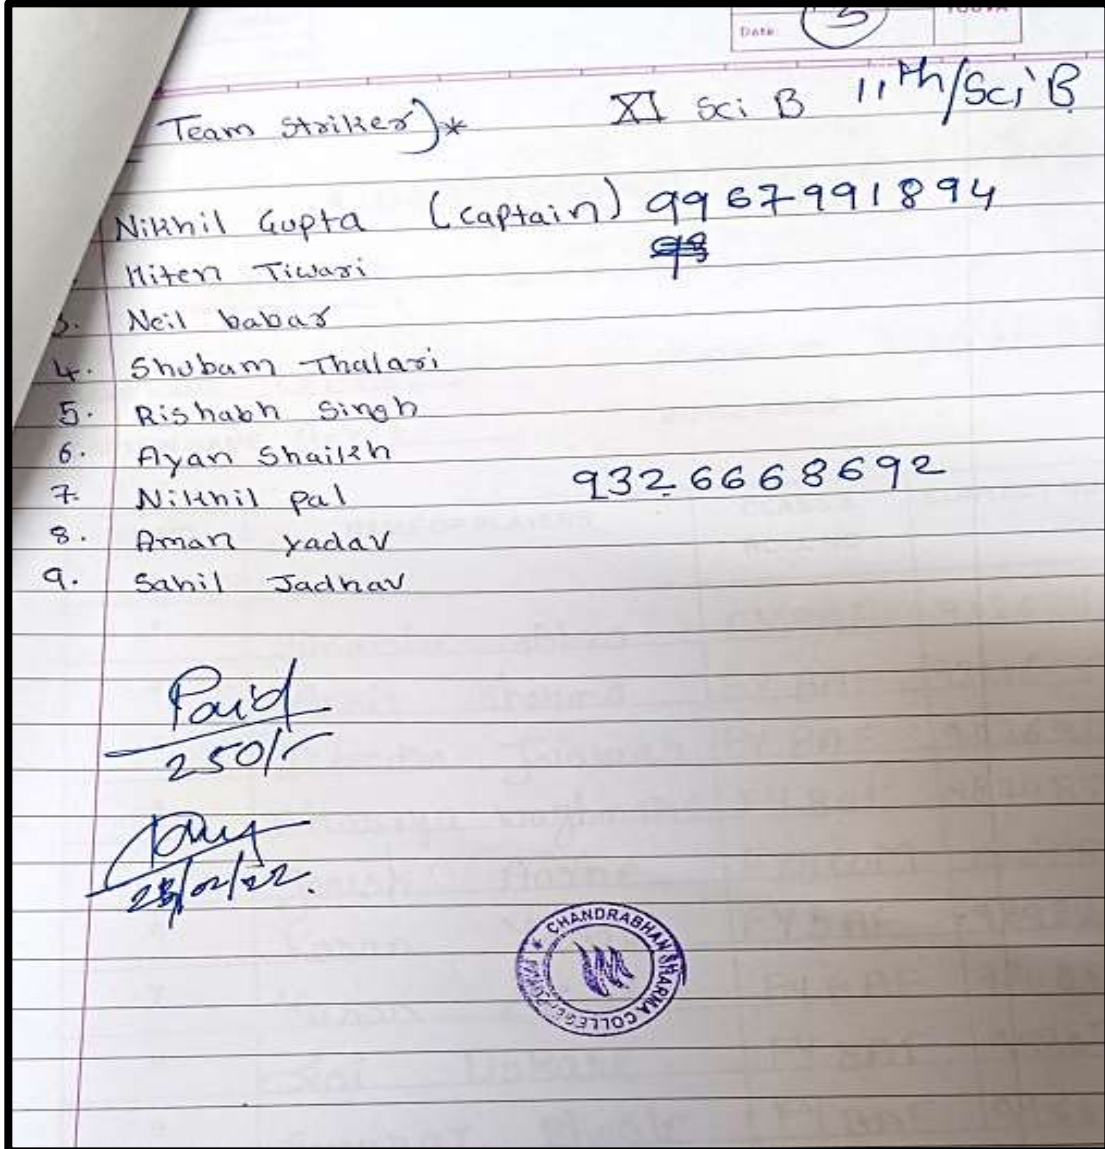 Date
3
Team Striker)* XI Sci B 11th/Sci B
Nikhil Gupta (captain) 9967991894
Miten Tiwari
3. Neil babar
4. Shubam Thalari
5. Rishabh Singh
6. Ayan Shaikh
7. Nikhil pal 9326668692
8. Aman yadav
9. Sahil Jadhav
Paid
250/-
/02/22.
CHANDRABHAN SHARMA COLLEGE